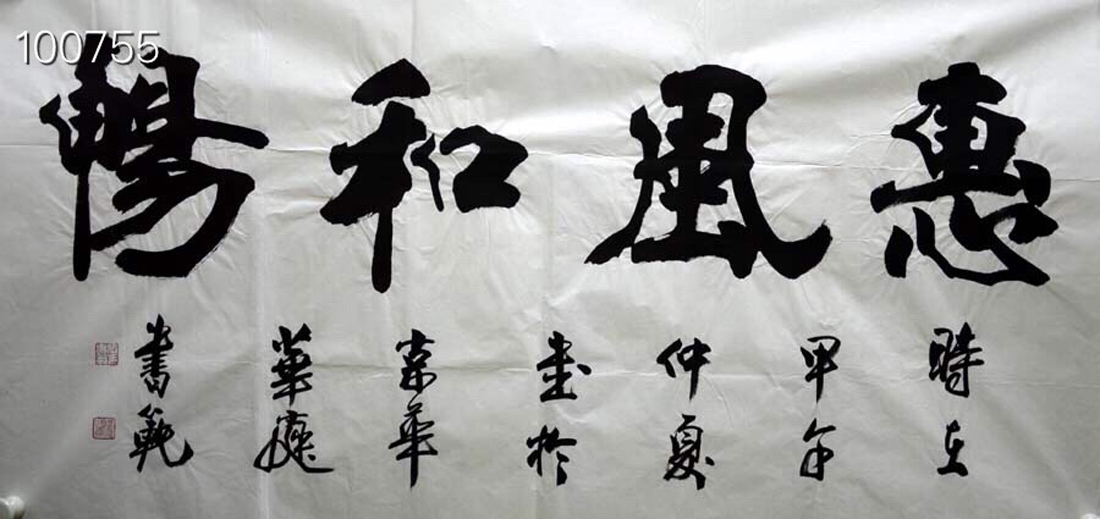 100755
惠風和暢
時在
甲午
仲夏
書於
京華
華庭
書範